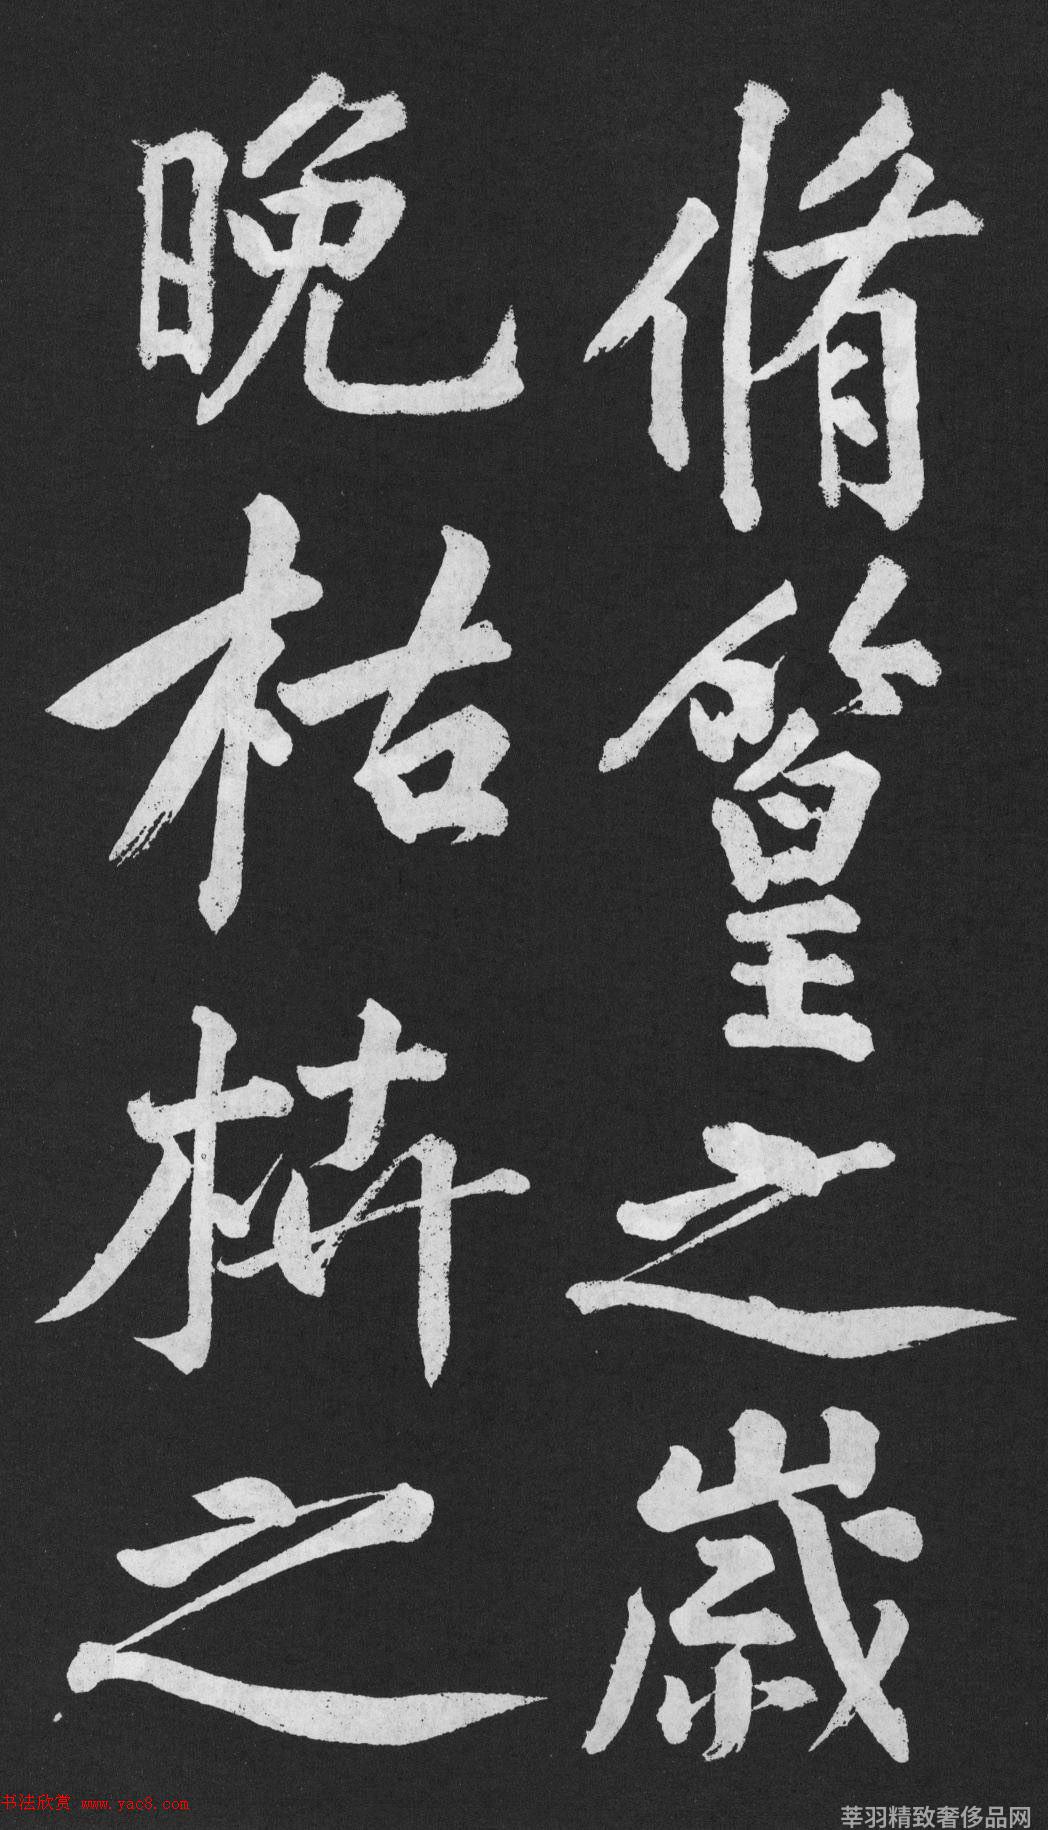 脩篁之歲
晚枯枿之
书法欣赏 www.yac8.com
莘羽精致奢侈品网